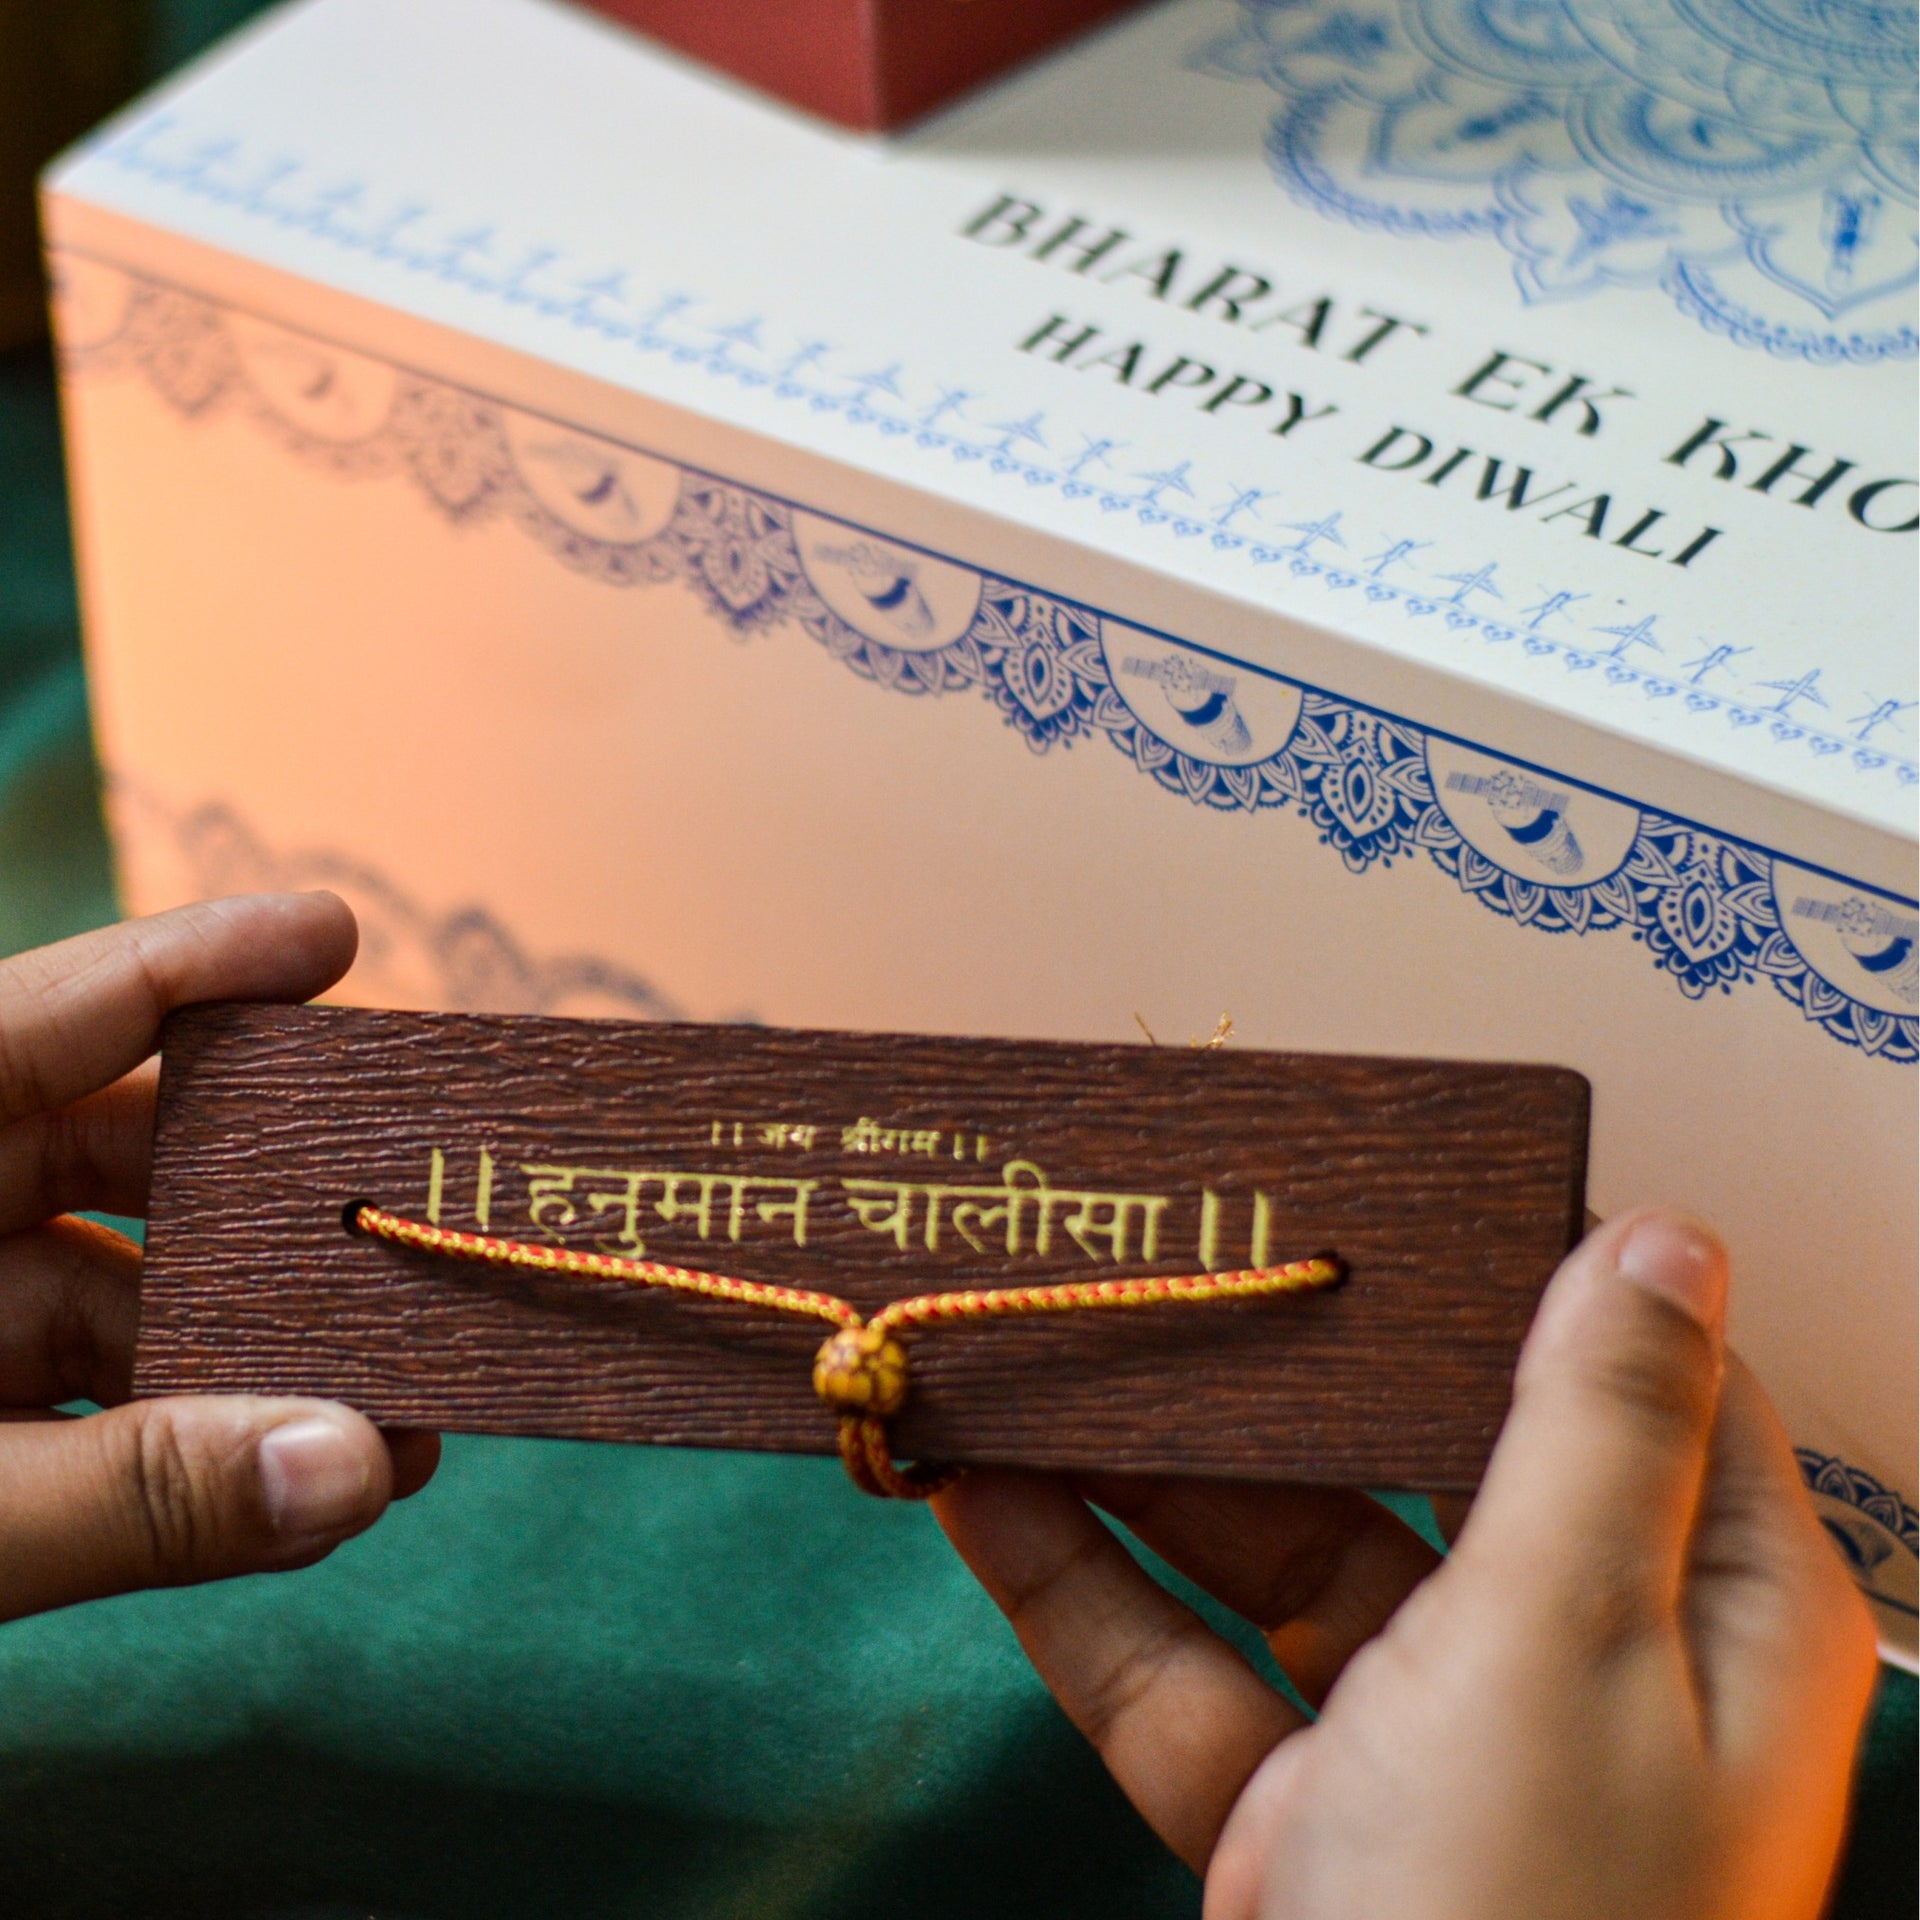 BHARAT EK KHO
HAPPY DIWALI
।। जय श्रीराम ।।
।। हनुमान चालीसा ।।